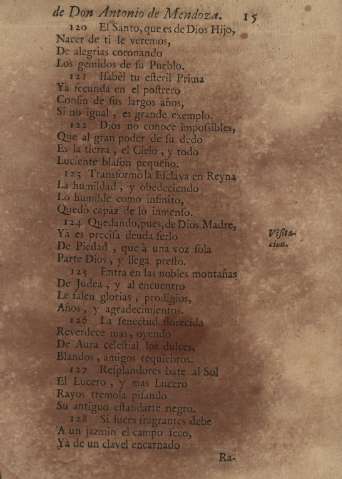 de Don Antonio de Mendoza. 15
120 El Santo, que es de Dios Hijo,
Nacer de ti le veremos,
De alegrias coronando
Los gemidos de su Pueblo.
121 Isabèl tu esteril Prima
Yà fecunda en el postrero
Confin de sus largos años,
Si no igual, es grande exemplo.
122 Dios no conoce impossibles,
Que al gran poder de su dedo
Es la tierra, el Cielo, y todo
Luciente blason pequeño.
123 Transformò la Esclava en Reyna
La humildad, y obedeciendo
Lo humilde como infinito,
Quedò capàz de lo inmenso.
124 Quedando, pues, de Dios Madre,
Yà es precisa deuda serlo
De Piedad, que à una voz sola
Parte Dios, y llega presto.
Visita-
cion.
125 Entra en las nobles montañas
De Judea, y al encuentro
Le salen glorias, prodigios,
Años, y agradecimientos.
126 La senectud florecida
Reverdece mas, oyendo
De Aura celestial los dulces,
Blandos, amigos requiebros.
127 Resplandores bate al Sol
El Lucero, y mas Lucero
Rayos tremola pisando
Su antiguo estandarte negro.
128 Si luces fragrantes debe
A un jazmin el campo seco,
Yà de un clavel encarnado
Ra-